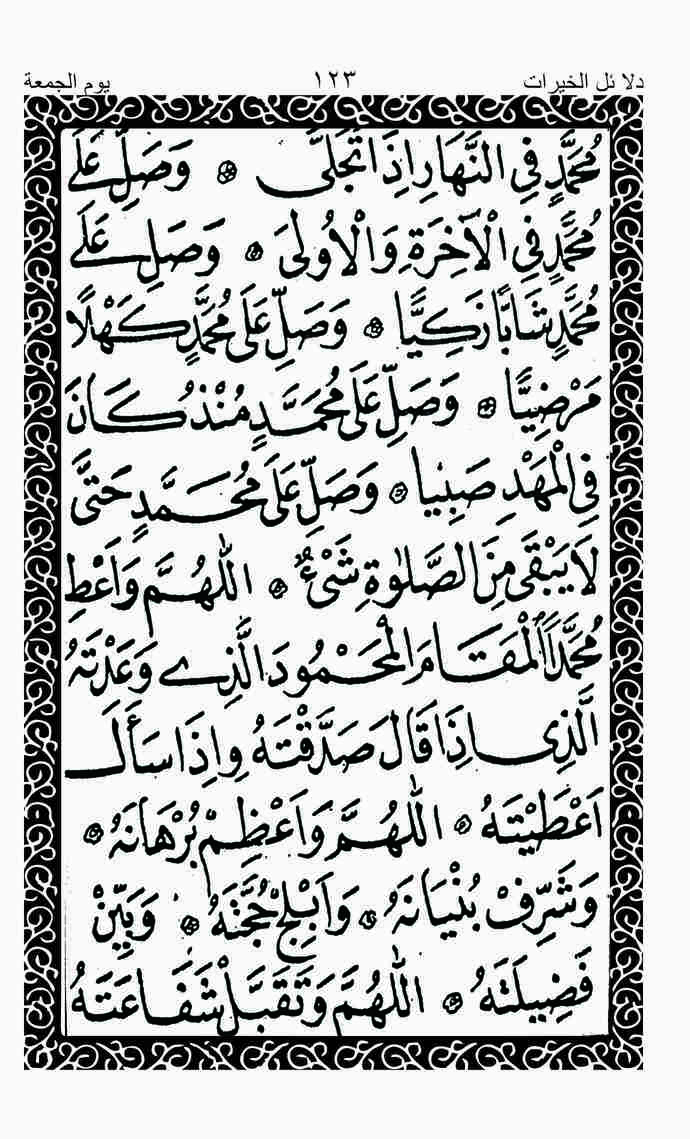 دلائل الخيرات ١٢٣ يوم الجمعة
مُحَمَّدٍ فِي النَّهَارِ اِذَا تَجَلَّى ۞ وَصَلِّ عَلَى
مُحَمَّدٍ فِي الْآخِرَةِ وَالْاُولىَ ۞ وَصَلِ عَلَى
مُحَمَّدٍ شَابًا زَكِيًّا ۞ وَصَلِّ عَلَى مُحَمَّدٍ كَهْلًا
مَرْضِيًّا ۞ وَصَلِّ عَلَى مُحَمَّدٍ مُنْذُ كَانَ
فِي الْمَهْدِ صَبِيا ۞ وَصَلِّ عَلَى مُحَمَّدٍ حَتَّى
لَا يَبْقَى مِنَ الصَّلٰوةِ شَىْءٌ ۞ اَللّٰهُمَّ وَاَعْطِ
مُحَمَّدًا الْمَقَامَ الْمَحْمُودَ الَّذِي وَعَدْتَهُ
الَّذِى اِذَا قَالَ صَدَّقْتَهُ وِاِذَا سَأَلَ
اَعْطَيْتَهُ ۞ اَللّٰهُمَّ وَاَعْظِمْ بُرْهَانَهُ ۞
وَشَرِّفْ بُنْيَانَهُ ۞ وَاَبْلِجْ حُجَّتَهُ ۞ وَبَيِّنْ
فَضِيلَتَهُ ۞ اَللّٰهُمَّ وَتَقَبَّلْ شَفَاعَتَهُ